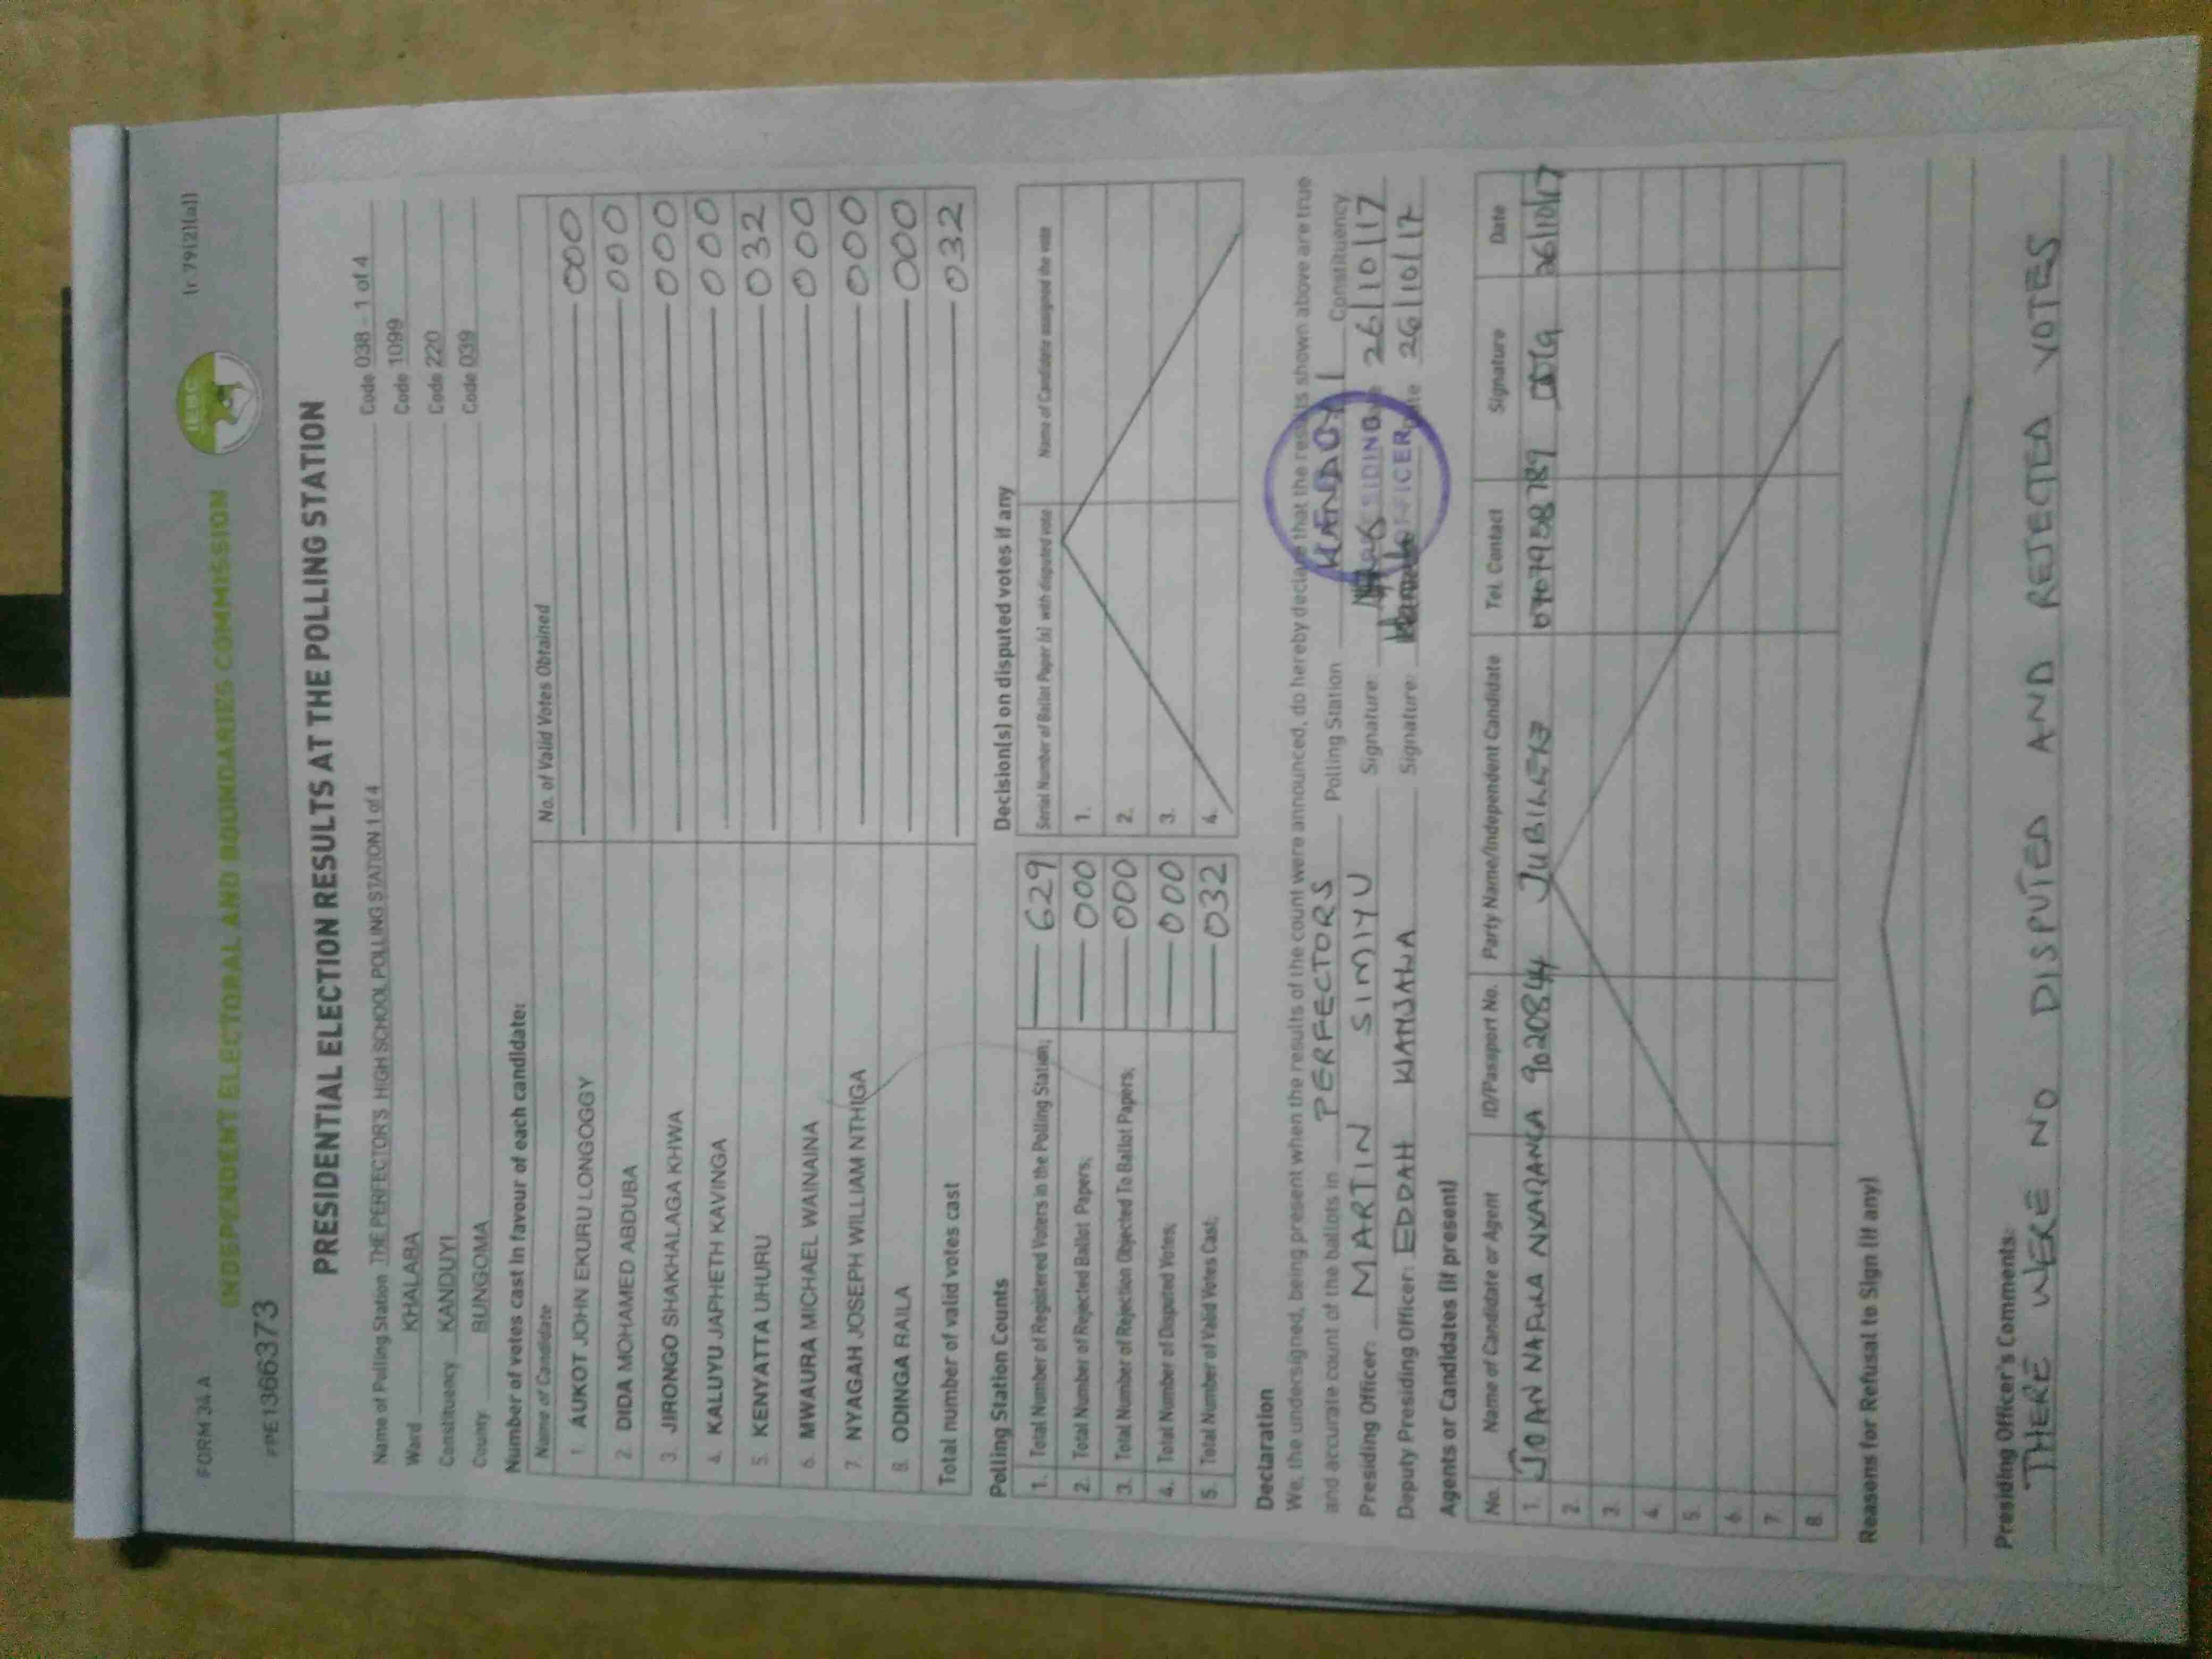 FORM 34 A
(r 79(2)(a))
INDEPENDENT ELECTORAL AND BOUNDARIES COMMISSION
IEBC
PRE1366373
PRESIDENTIAL ELECTION RESULTS AT THE POLLING STATION
Name of Polling Station THE PERFECTOR'S HIGH SCHOOL POLLING STATION 1 of 4 Code 038 - 1 of 4
Ward KHALABA Code 1099
Constituency KANDUYI Code 220
County BUNGOMA Code 039
Number of votes cast in favour of each candidate:
Name of Candidate No. of Valid Votes Obtained
1. AUKOT JOHN EKURU LONGOGGY 000
2. DIDA MOHAMED ABDUBA 000
3. JIRONGO SHAKHALAGA KHWA 000
4. KALUYU JAPHETH KAVINGA 000
5. KENYATTA UHURU 032
6. MWAURA MICHAEL WAINAINA 000
7. NYAGAH JOSEPH WILLIAM NTHIGA 000
8. ODINGA RAILA 000
Total number of valid votes cast 032
Polling Station Counts
1. Total Number of Registered Voters in the Polling Station; 629
2. Total Number of Rejected Ballot Papers; 000
3. Total Number of Rejection Objected To Ballot Papers; 000
4. Total Number of Disputed Votes; 000
5. Total Number of Valid Votes Cast; 032
Decision(s) on disputed votes if any
Serial Number of Ballot Paper (s) with disputed vote Name of Candidate assigned the vote
1.
2.
3.
4.
Declaration
We, the undersigned, being present when the results of the count were announced, do hereby declare that the results shown above are true
and accurate count of the ballots in PERFECTORS Polling Station KANDUYI Constituency
Presiding Officer: MARTIN SIMIYU Signature: Date 26/10/17
Deputy Presiding Officer: EDDAH WANJALA Signature: Date 26/10/17
PRESIDING OFFICER
Agents or Candidates (if present)
No. Name of Candidate or Agent ID/Passport No. Party Name/Independent Candidate Tel. Contact Signature Date
1. JOAN NAFULA 9020844 JUBILEE 26/10/17
2.
3.
4.
5.
6.
7.
8.
Reasons for Refusal to Sign (if any)
Presiding Officer's Comments:
THERE WERE NO DISPUTED AND REJECTED VOTES